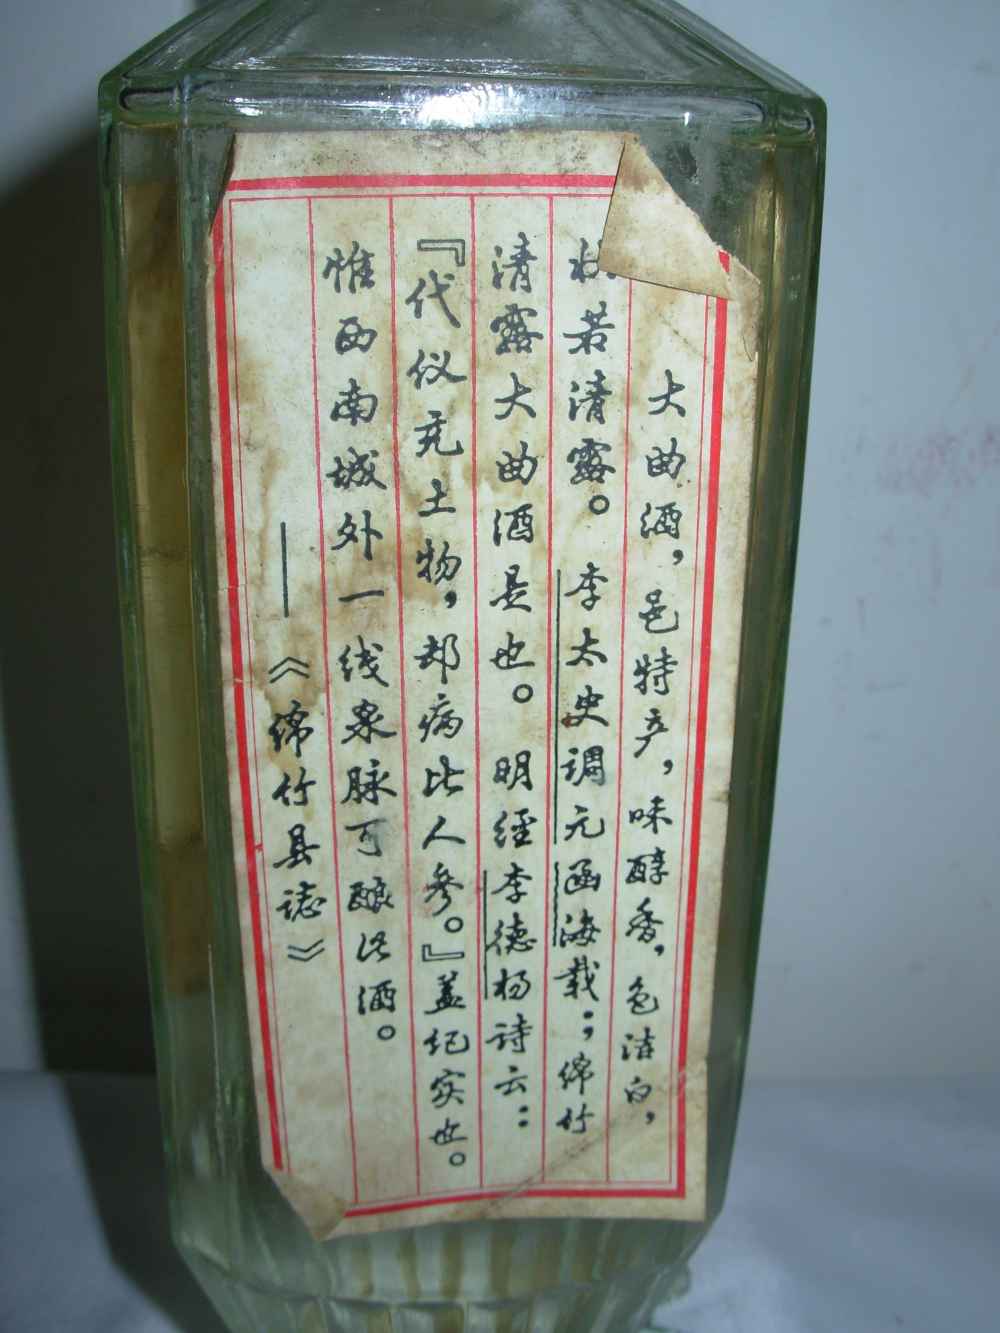 大曲酒，邑特产，味醇香，色洁白，
若清露。李太史调元函海载；绵竹
清露大曲酒是也。明经李德扬诗云：
『代仪充土物，却病比人参。』盖纪实也。
惟西南城外一线泉脉可酿此酒。
——《绵竹县誌》